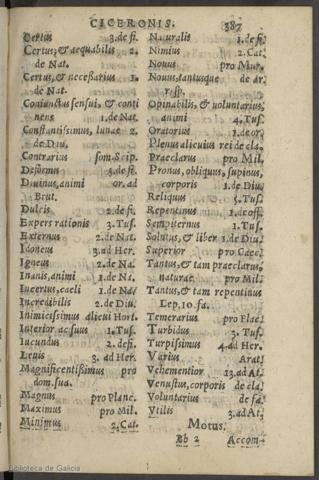 CICERONIS. 387
Certus 3. de fi.
Certus, & aequabilis 2.
de Nat.
Certus, & necessarius 1.
de Nat.
Coniunctus sensui, & conti
nens 1. de Nat.
Constantissimus, lunae 2.
de Diu.
Contrarius som. Scip.
Deformis 5. de fi.
Diuinus, animi or. ad
Brut.
Dulcis 2. de fi.
Expers rationis 3. Tus.
Externus 2. de Nat.
Idoneus 3. ad Her.
Igneus 2. de Na.
Inanis, animi 1. de Na.
Incertus, caeli 1. de Na.
Incredibilis 2. de Diu.
Inimicissimus alicui Hort.
Interior ac suus 1. Tus.
Iucundus 2. de fi.
Leuis 3. ad Her.
Magnificentissimus pro
dom. sua.
Magnus pro Planc.
Maximus pro Mil.
Minimus 2. Cat.
Naturalis 1. de fi.
Nimius 2. Cat.
Nouus pro Mur.
Nouus, tantusque de ar.
resp.
Opinabilis, & voluntarius,
animi 4. Tus.
Oratorius 1. de or.
Plenus alicuius rei de cla.
Praeclarus pro Mil.
Pronus, obliquus, supinus,
corporis 1. de Diu.
Reliquus 5. Tus.
Repentinus 1. de off.
Sempiternus 1. Tus.
Solutus, & liber 1. de Diu.
Superior pro Caec.
Tantus, & tam praeclarus,
naturae pro Mil.
Tantus, & tam repentinus
Lep. 10. fa.
Temerarius pro Plac.
Turbidus 3. Tus.
Turpissimus 4. ad Her.
Varius Arat.
Vehementior 13. ad At.
Venustus, corporis de cla.
Voluntarius de fa.
Vtilis 3. ad At.
Motus.
Bb 2 Accom-
Biblioteca de Galicia